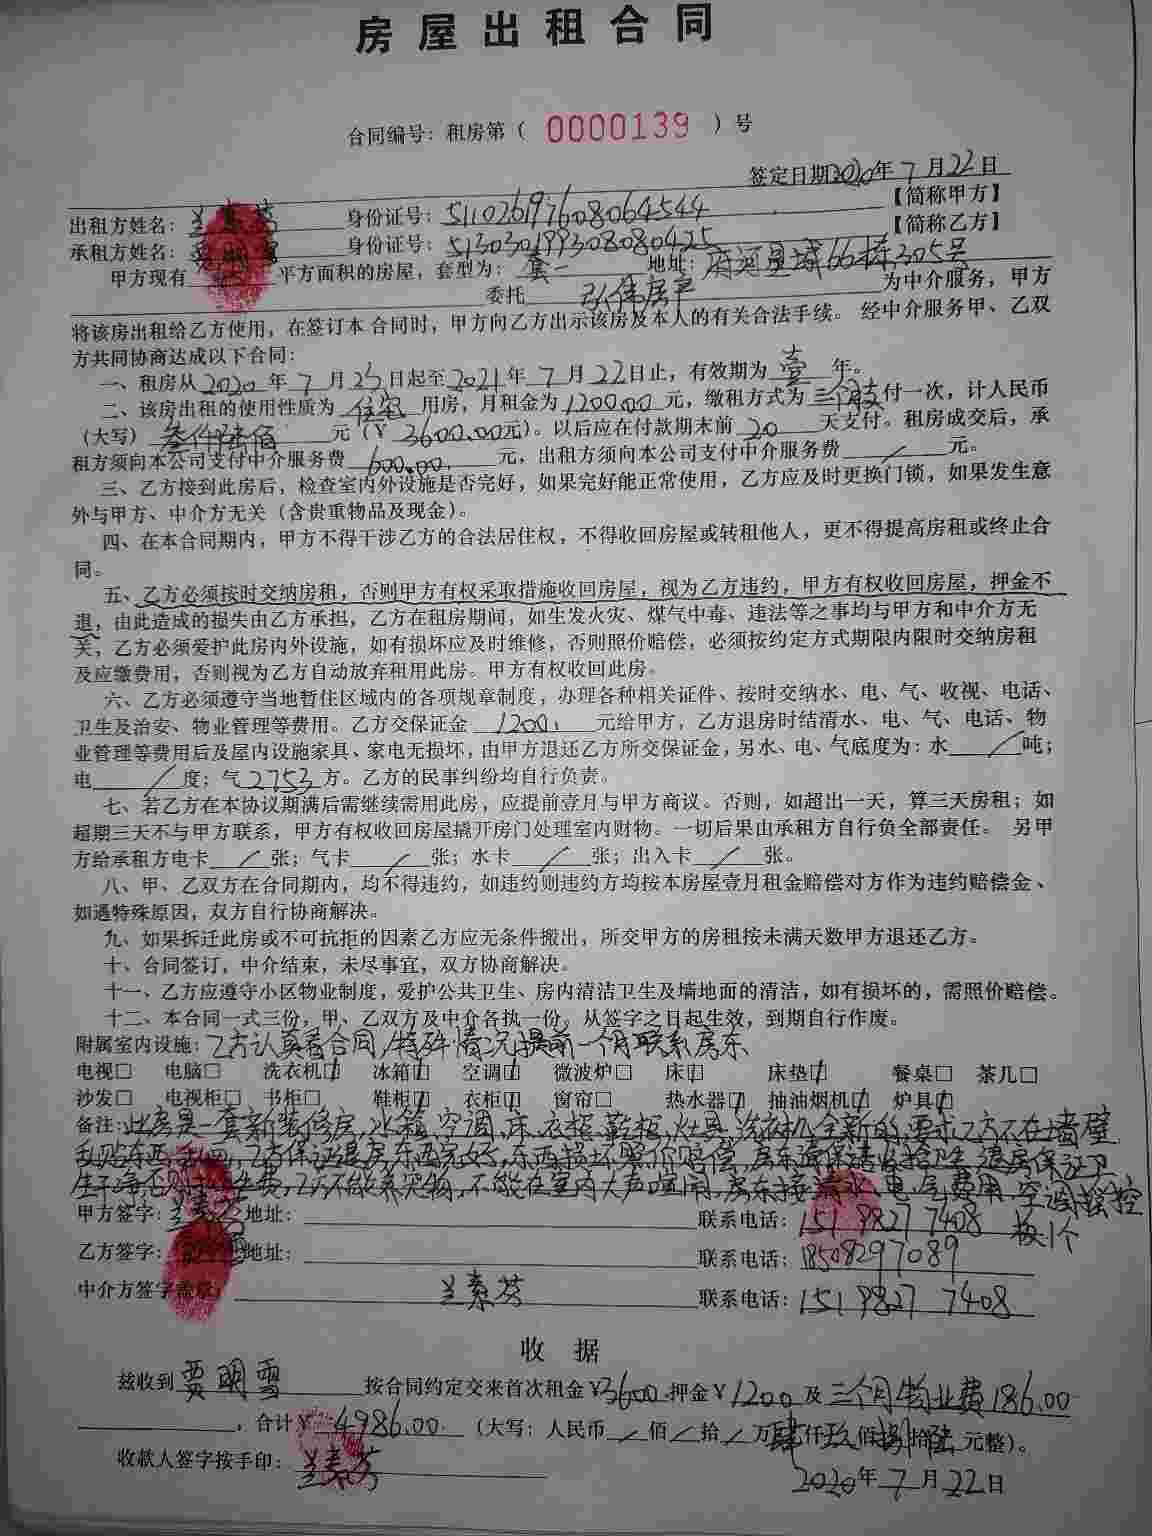 房屋出租合同
合同编号：租房第（ 0000139 ）号
签定日期2020年7月22日
出租方姓名：兰素芬 身份证号：511026197608064544 【简称甲方】
承租方姓名：贾明雪 身份证号：513030199308080425 【简称乙方】
甲方现有 平方面积的房屋，套型为：套一 地址：府河星城66栋305号
委托 弘伟房产 为中介服务，甲方
将该房出租给乙方使用，在签订本合同时，甲方向乙方出示该房及本人的有关合法手续。经中介服务甲、乙双
方共同协商达成以下合同：
一、租房从2020年7月23日起至2021年7月22日止，有效期为壹年。
二、该房出租的使用性质为住宅用房，月租金为1200.00元，缴租方式为三个月支付一次，计人民币
（大写）叁仟陆佰元（￥3600.00元）。以后应在付款期末前20天支付。租房成交后，承
租方须向本公司支付中介服务费600.00.元，出租方须向本公司支付中介服务费/元。
三、乙方接到此房后，检查室内外设施是否完好，如果完好能正常使用，乙方应及时更换门锁，如果发生意
外与甲方、中介方无关（含贵重物品及现金）。
四、在本合同期内，甲方不得干涉乙方的合法居住权，不得收回房屋或转租他人，更不得提高房租或终止合
同。
五、乙方必须按时交纳房租，否则甲方有权采取措施收回房屋，视为乙方违约，甲方有权收回房屋，押金不
退，由此造成的损失由乙方承担，乙方在租房期间，如生发火灾、煤气中毒、违法等之事均与甲方和中介方无
关，乙方必须爱护此房内外设施，如有损坏应及时维修，否则照价赔偿，必须按约定方式期限内限时交纳房租
及应缴费用，否则视为乙方自动放弃租用此房。甲方有权收回此房。
六、乙方必须遵守当地暂住区域内的各项规章制度，办理各种相关证件、按时交纳水、电、气、收视、电话、
卫生及治安、物业管理等费用。乙方交保证金1200.元给甲方，乙方退房时结清水、电、气、电话、物
业管理等费用后及屋内设施家具、家电无损坏，由甲方退还乙方所交保证金，另水、电、气底度为：水/吨；
电/度；气2753方。乙方的民事纠纷均自行负责。
七、若乙方在本协议期满后需继续需用此房，应提前壹月与甲方商议。否则，如超出一天，算三天房租；如
超期三天不与甲方联系，甲方有权收回房屋撬开房门处理室内财物。一切后果由承租方自行负全部责任。 另甲
方给承租方电卡/张；气卡/张；水卡/张；出入卡/张。
八、甲、乙双方在合同期内，均不得违约，如违约则违约方均按本房屋壹月租金赔偿对方作为违约赔偿金、
如遇特殊原因，双方自行协商解决。
九、如果拆迁此房或不可抗拒的因素乙方应无条件搬出，所交甲方的房租按未满天数甲方退还乙方。
十、合同签订，中介结束，未尽事宜，双方协商解决。
十一、乙方应遵守小区物业制度，爱护公共卫生、房内清洁卫生及墙地面的清洁，如有损坏的，需照价赔偿。
十二、本合同一式三份，甲、乙双方及中介各执一份，从签字之日起生效，到期自行作废。
附属室内设施：乙方认真看合同，特殊情况提前一个月联系房东
电视□ 电脑□ 洗衣机☑ 冰箱☑ 空调☑ 微波炉□ 床☑ 床垫☑ 餐桌□ 茶几□
沙发□ 电视柜□ 书柜□ 鞋柜☑ 衣柜☑ 窗帘□ 热水器☑ 抽油烟机☑ 炉具☑
备注：此房是一套新装修房，冰箱、空调、床、衣柜、鞋柜，灶具，洗衣机全新的，要求乙方不在墙壁
乱贴东西乱画，乙方保证退房东西完好，东西损坏照价赔偿，房东请保洁收拾卫生，退房保证卫
生干净否则扣费，乙方不能养宠物，不能在室内大声喧闹，房东接清水、电、气费用，空调摇控
板1个
甲方签字：兰素芬 地址： 联系电话：15198277408
乙方签字： 地址： 联系电话：18508297089
中介方签字盖章： 兰素芬 联系电话：15198277408
收 据
兹收到贾明雪按合同约定交来首次租金￥3600押金￥1200及三个月物业费186.00
，合计￥4986.00（大写：人民币/佰/拾/万肆仟玖佰捌拾陆元整）。
收款人签字按手印：兰素芬
2020年7月22日